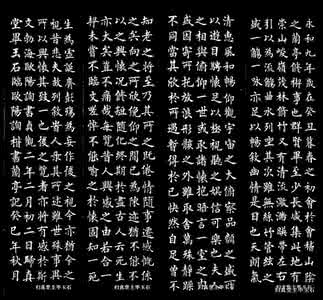 永和九年歲在癸丑暮春之初會于會稽山陰
之蘭亭脩禊事也群賢畢至少長咸集此地有
崇山峻領茂林脩竹又有清流激湍映帶左右
引以為流觴曲水列坐其次雖無絲竹管弦之
盛一觴一詠亦足以暢敘幽情是日也天朗氣
清惠風和暢仰觀宇宙之大俯察品類之盛所
以遊目騁懷足以極視聽之娛信可樂也夫人
之相與俯仰一世或取諸懷抱晤言一室之內
或因寄所託放浪形骸之外雖趣舍萬殊靜躁
不同當其欣於所遇暫得於己快然自足曾不
知老之將至及其所之既倦情隨事遷感慨係
之矣向之所欣俛仰之間以為陳迹猶不能不
以之興懷況脩短隨化終期於盡古人云死生
亦大矣豈不痛哉每攬昔人興感之由若合一
契未嘗不臨文嗟悼不能喻之於懷固知一死
生為虛誕齊彭殤為妄作後之視今亦由今之
視昔悲夫故列敘時人錄其所述雖世殊事異
所以興懷其致一也後之攬者亦將有感於斯
文渤海歐陽詢貞觀二年二月初二日
堂畢玉石臨歐陽詢楷書蘭亭記癸巳年八月
归真堂主毕玉石
归真堂主毕玉石
归真堂主毕玉石
归真堂主毕玉石